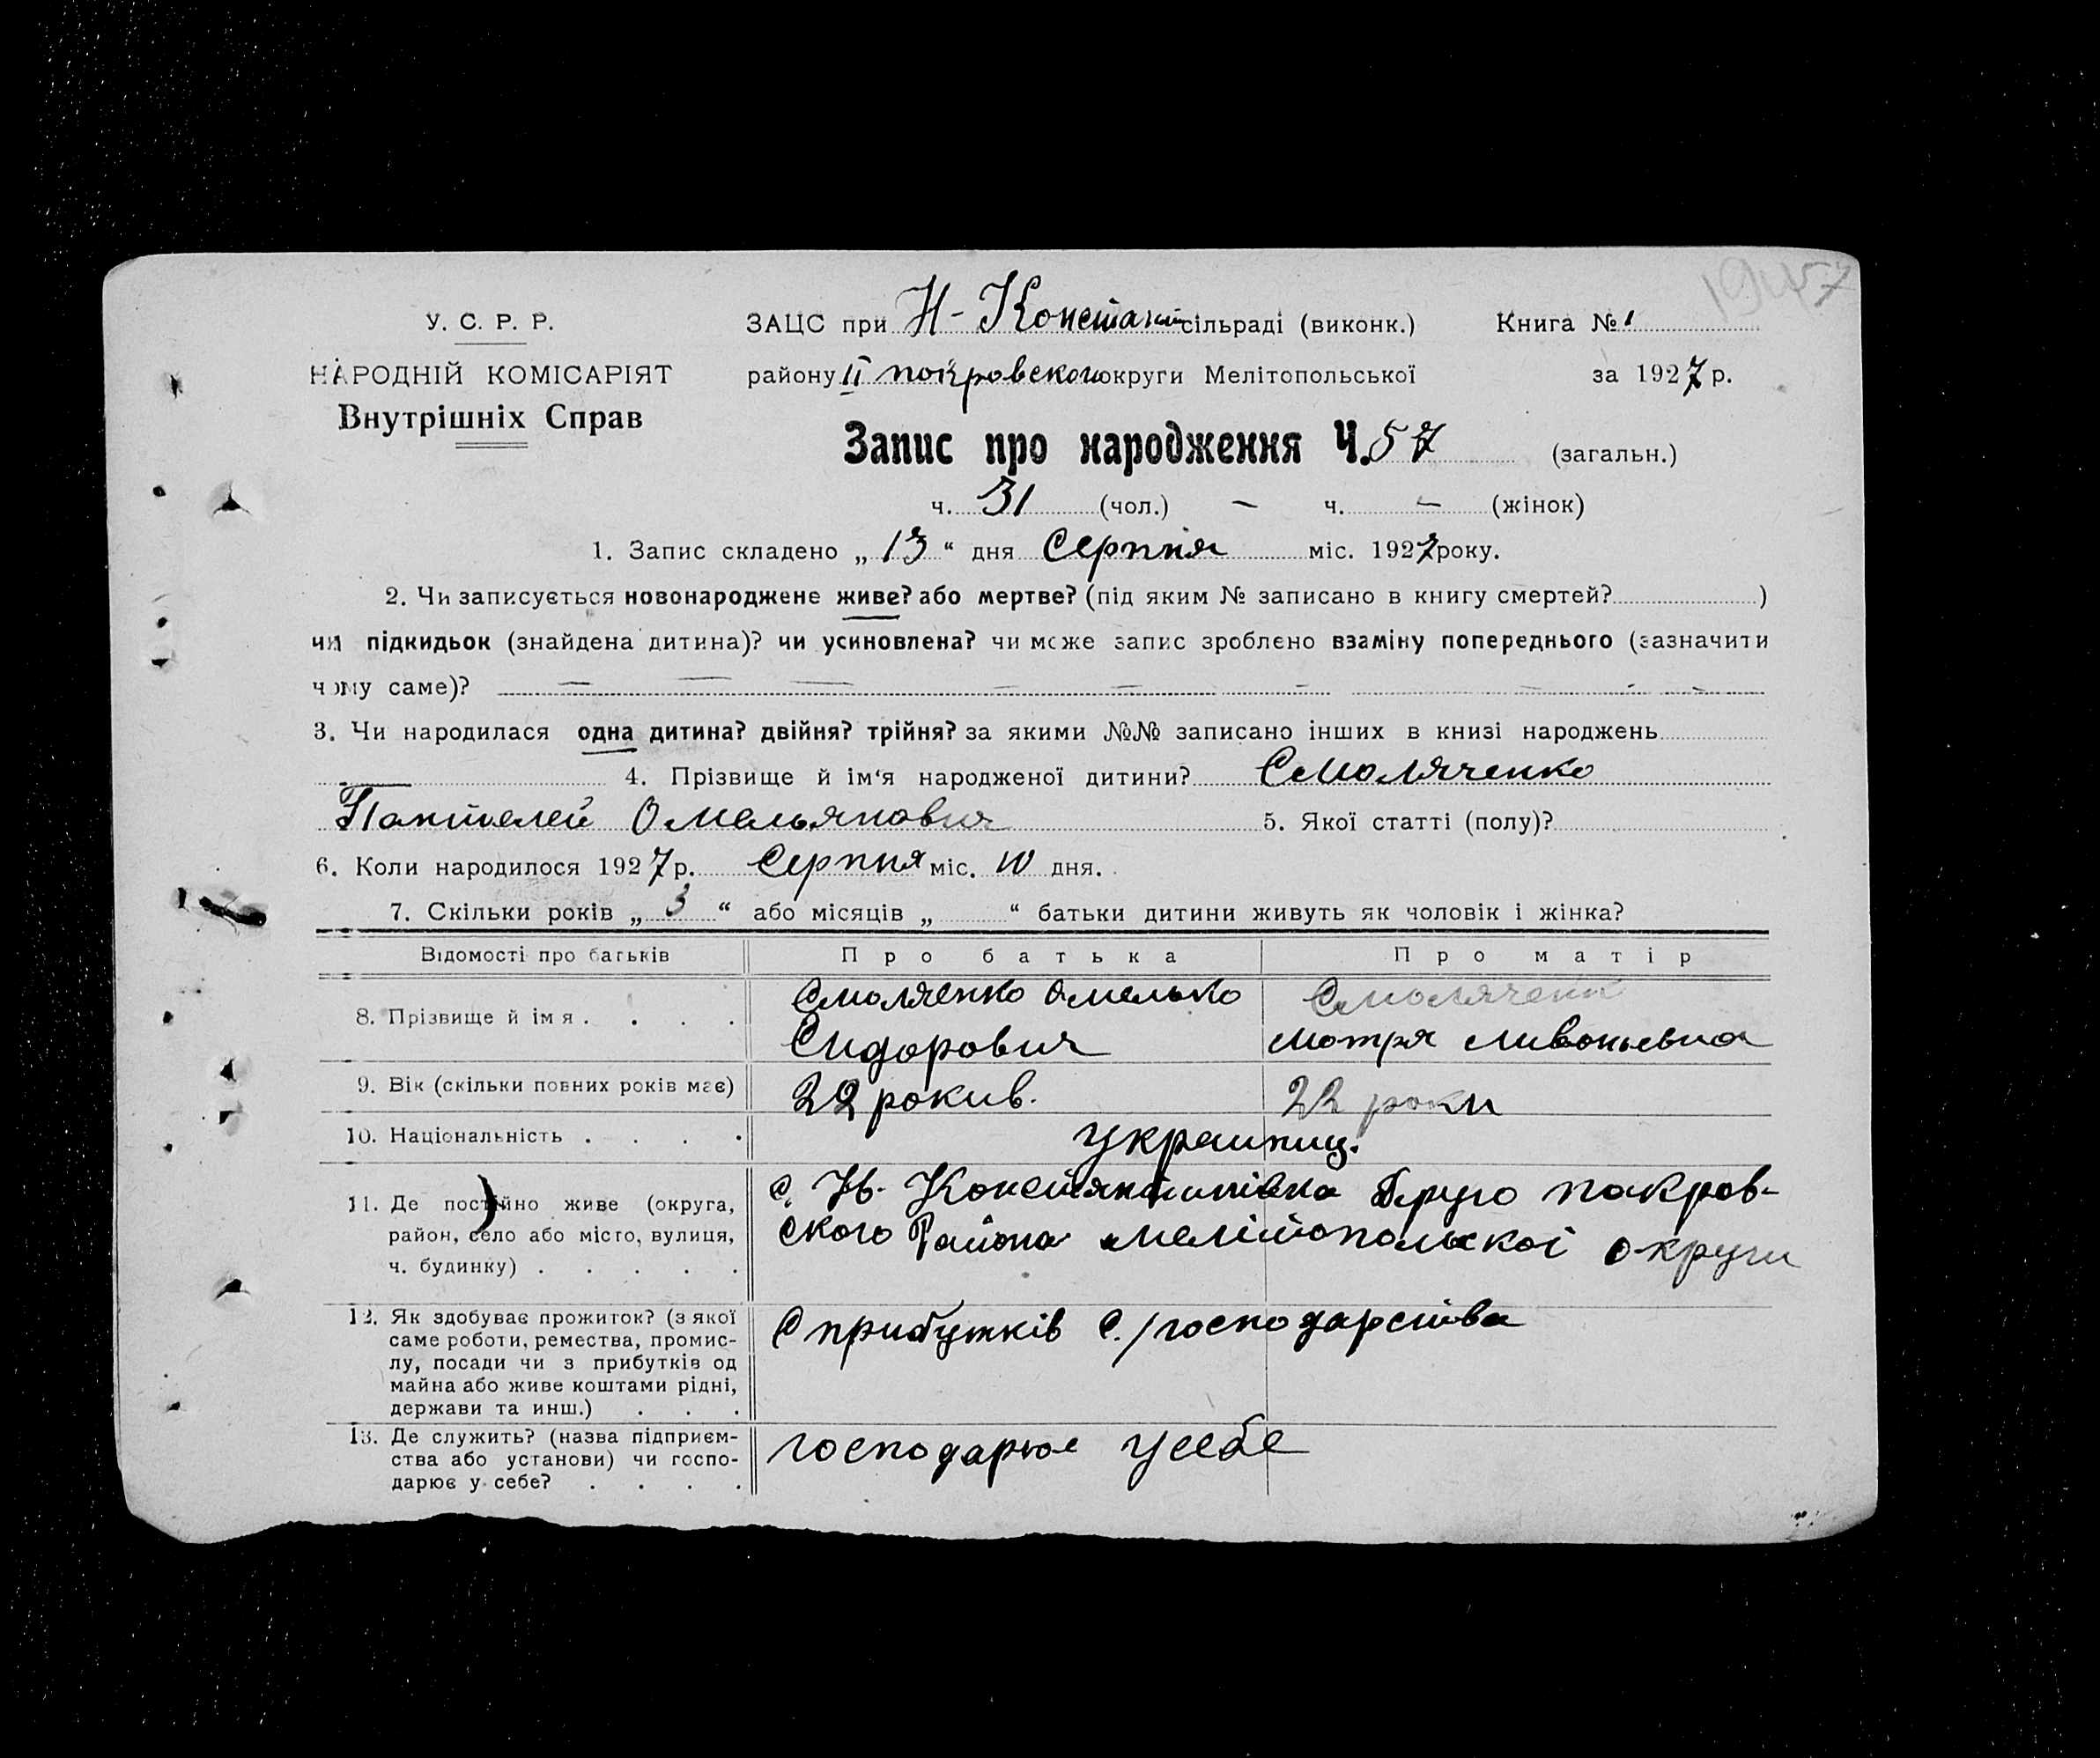 1947
У. С. Р. Р.
ЗАЦС при Н-Констант сільраді (виконк.) Книга № 1
НАРОДНІЙ КОМІСАРІЯТ
району ІІ покровского округи Мелітопольської за 1927 р.
Внутрішніх Справ
Запис про народження Ч. 57 (загальн.)
ч. 31 (чол.) — ч. — (жінок)
1. Запис складено „ 13 “ дня Серпня міс. 1927 року.
2. Чи записується новонароджене живе? або мертве? (під яким № записано в книгу смертей? )
чи підкидьок (знайдена дитина)? чи усиновлена? чи може запис зроблено взаміну попереднього (зазначити
чому саме)? — — — — — — — — —
3. Чи народилася одна дитина? двійня? трійня? за якими №№ записано інших в книзі народжень
4. Прізвище й ім‘я народженої дитини? Смоляченко
Пантелей Омельянович 5. Якої статті (полу)?
6. Коли народилося 1927 р. Серпня міс. 10 дня.
7. Скільки років „ 3 “ або місяців „ “ батьки дитини живуть як чоловік і жінка?
Відомості про батьків Про батька Про матір
8. Прізвище й ім я . . . .
Смоляченко Омелько
Сидорович
Смоляченк
Мотря Ливоньевна
9. Вік (скільки повних років має) 22 рокив. 22 роки
10. Національність . . . . украинц.
11. Де постійно живе (округа,
район, село або місто, вулиця,
ч. будинку) . . . . .
с. Нв. Константинівка Друго покров-
ского Района Мелітопольскоі округи
12. Як здобуває прожиток? (з якої
саме роботи, ремества, промис-
лу, посади чи з прибутків од
майна або живе коштами рідні,
держави та инш.) . . .
С прибутків с./господарства
13. Де служить? (назва підприєм-
ства або установи) чи госпо-
дарює у себе? . . . .
господарює усебе